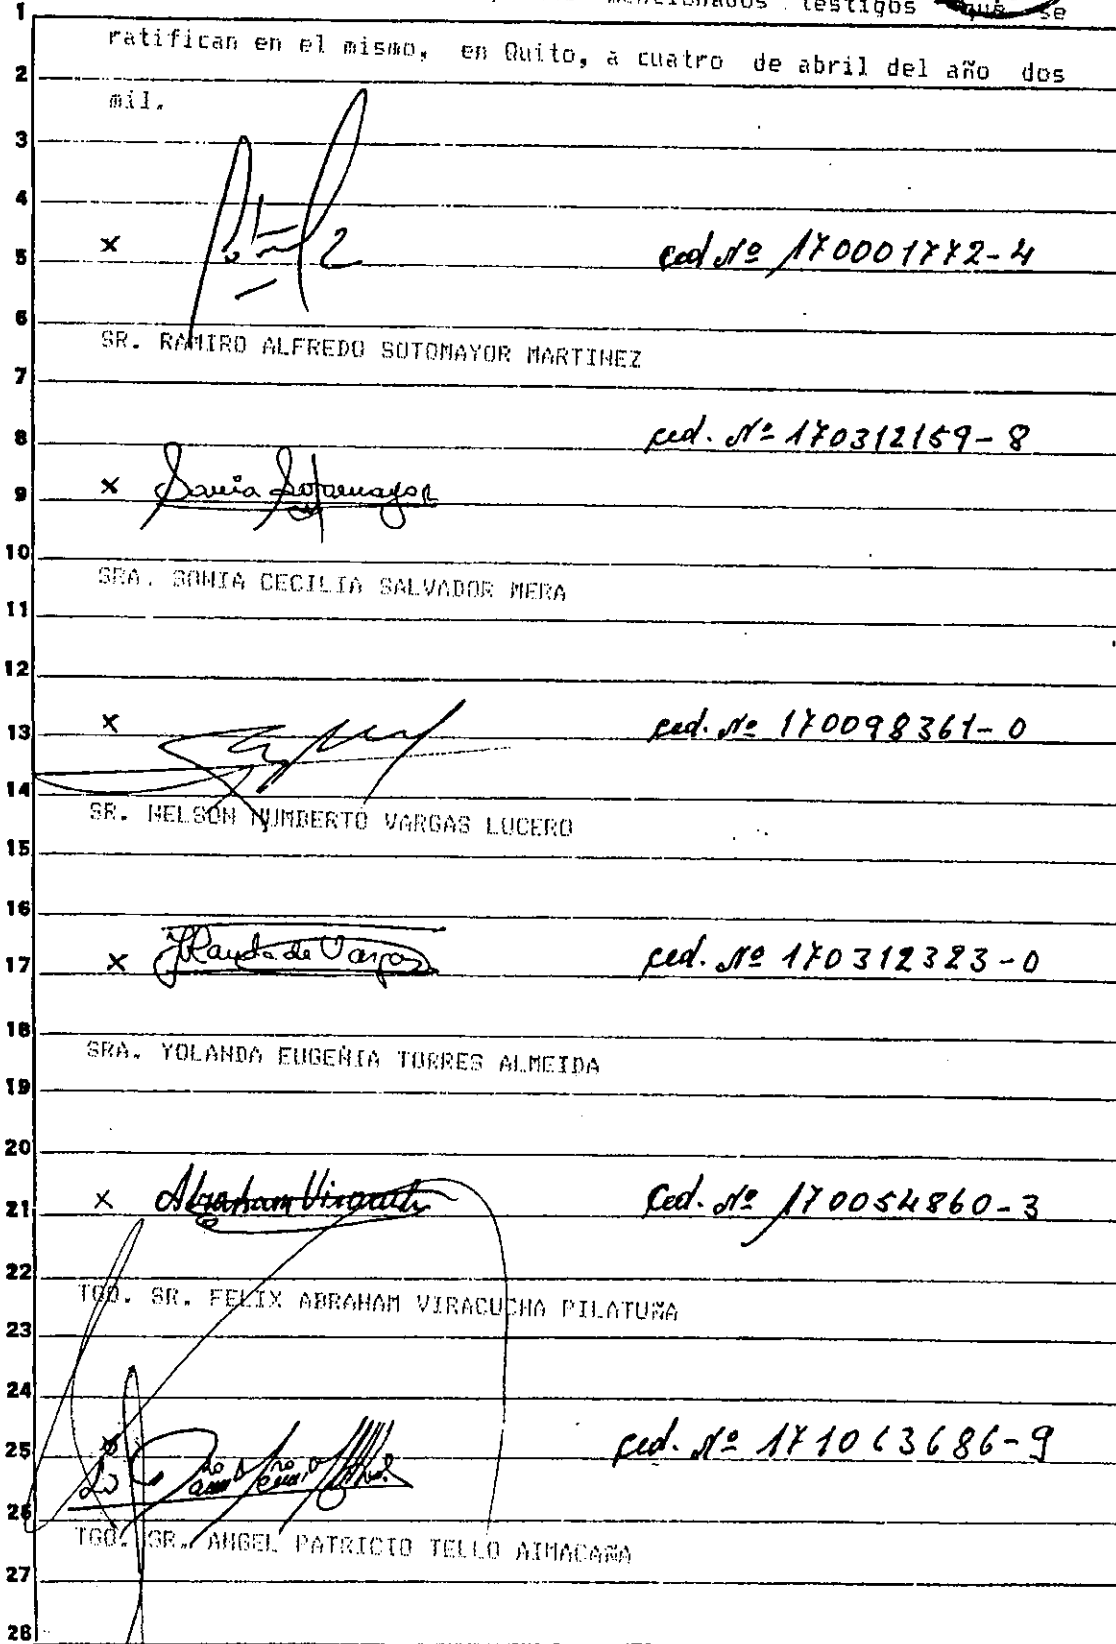 1
mencionados testigos que se
ratifican en el mismo, en Quito, a cuatro de abril del año dos
2
mil.
3
4
5 x ced. Nº 170001772-4
6
SR. RAMIRO ALFREDO SOTOMAYOR MARTINEZ
7
8 ced. Nº 170312159-8
9 x Sonia Sotomayor
10
SRA. SONIA CECILIA SALVADOR MERA
11
12
13 x ced. Nº 170098361-0
14
SR. NELSON HUMBERTO VARGAS LUCERO
15
16
17 x YTlanda de Vargas ced. Nº 170312323-0
18
SRA. YOLANDA EUGENIA TORRES ALMEIDA
19
20
21 x Abraham Viracucha Ced. Nº 170054860-3
22
TGO. SR. FELIX ABRAHAM VIRACUCHA PILATUÑA
23
24
25 x ced. Nº 171063686-9
26
TGO. SR. ANGEL PATRICIO TELLO AIMACAÑA
27
28